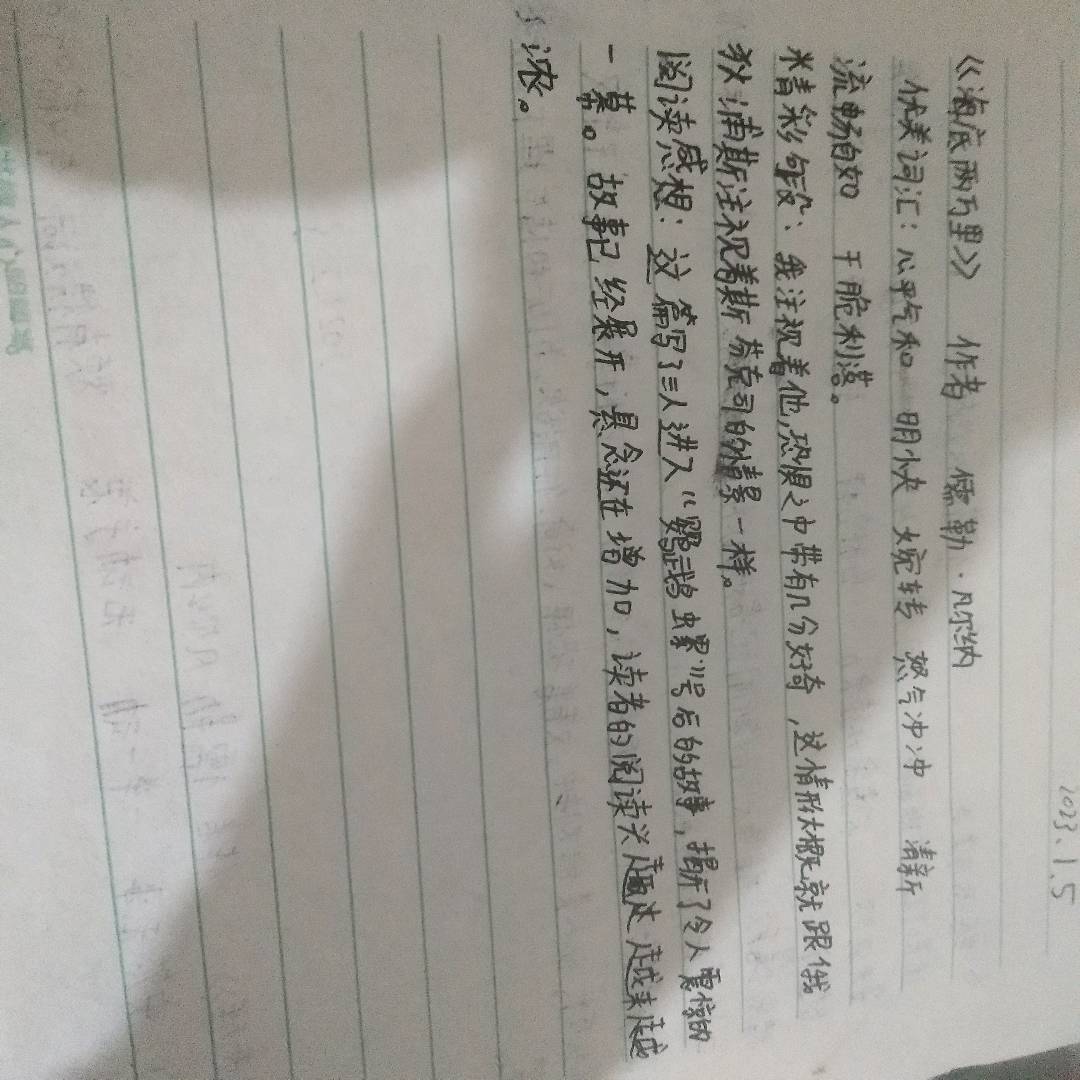 2023.1.5
《海底两万里》 作者 儒勒·凡尔纳
优美词汇：心平气和 明快 婉转 怒气冲冲 清新
流畅自如 干脆利落。
精彩句段：我注视着他,恐惧之中带有几分好奇，这情形大概就跟俄
狄浦斯注视着斯芬克司的情景一样。
阅读感想：这篇写了三人进入“鹦鹉螺”号后的故事，揭开了令人震惊的
一幕。故事已经展开，悬念还在增加，读者的阅读兴趣也越来越
浓。